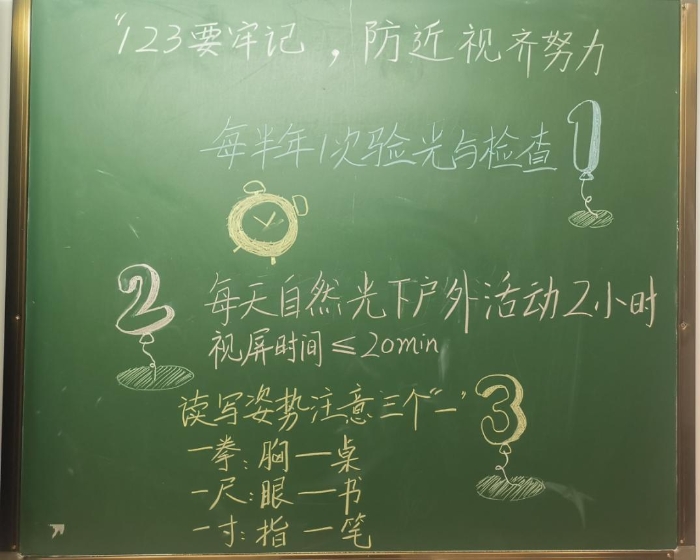 “123要牢记，防近视齐努力
每半年1次验光与检查
1
2
每天自然光下户外活动2小时
视屏时间≤20min
读写姿势注意三个“一”
3
一拳：胸—桌
一尺：眼—书
一寸：指—笔
”